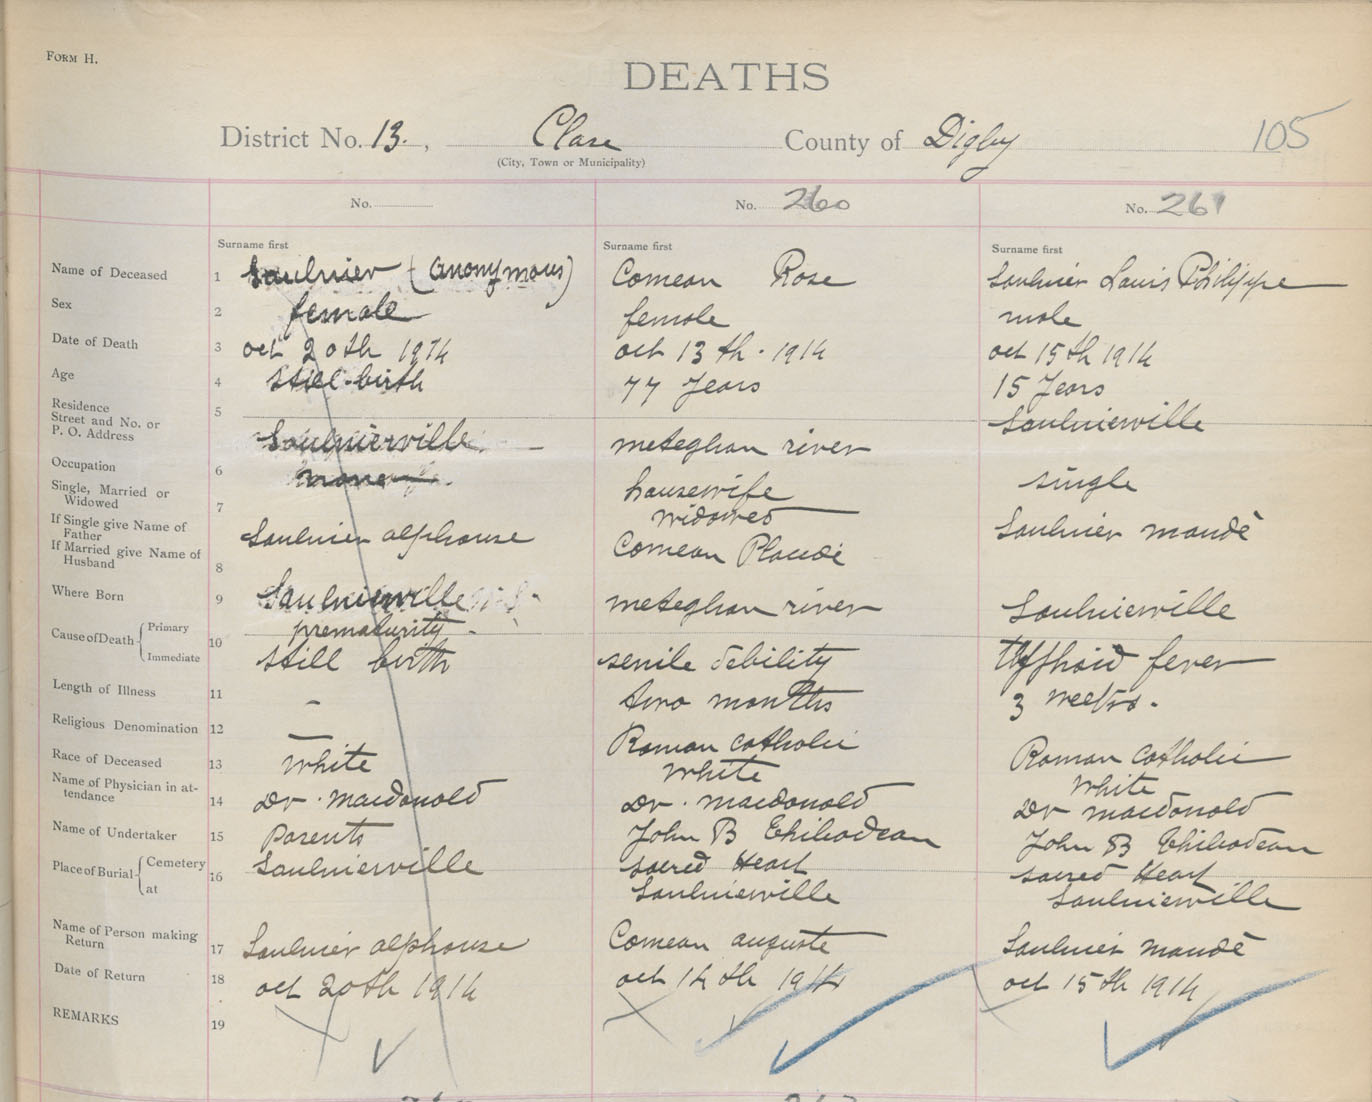 FORM H.
DEATHS
District No. 13. , Clare County of Digby 105
(City, Town or Municipality)
No. No. 260 No. 261
Surname first Surname first Surname first
Name of Deceased 1 Saulnier (anonymous) Comeau Rose Saulnier Louis Philippe
Sex 2 female female male
Date of Death 3 oct 20th 1914 oct 13th. 1914 oct 15th 1914
Age 4 still-birth 77 years 15 years
Residence Street and No. or P. O. Address 5 Saulnierville meteghan river Saulnierville
Occupation 6 housewife
Single, Married or Widowed 7 widowed single
If Single give Name of Father If Married give Name of Husband 8 Saulnier alphonse Comeau Plaude Saulnier mandé
Where Born 9 Saulnierville N.S. meteghan river Saulnierville
Cause of Death { Primary Immediate 10 prematurity - still birth senile debility Typhoid fever
Length of Illness 11 - two months 3 weeks.
Religious Denomination 12 — Roman catholic Roman catholic
Race of Deceased 13 white white white
Name of Physician in attendance 14 Dr. macdonald Dr. macdonald Dr macdonald
Name of Undertaker 15 Parents John B Thibodeau John B Thibodeau
Place of Burial { Cemetery at 16 Saulnierville sacred Heart Saulnierville sacred Heart Saulnierville
Name of Person making Return 17 Saulnier alphonse Comeau auguste Saulnier mandé
Date of Return 18 oct 20th 1914 oct 14th 1914 oct 15th 1914
REMARKS 19